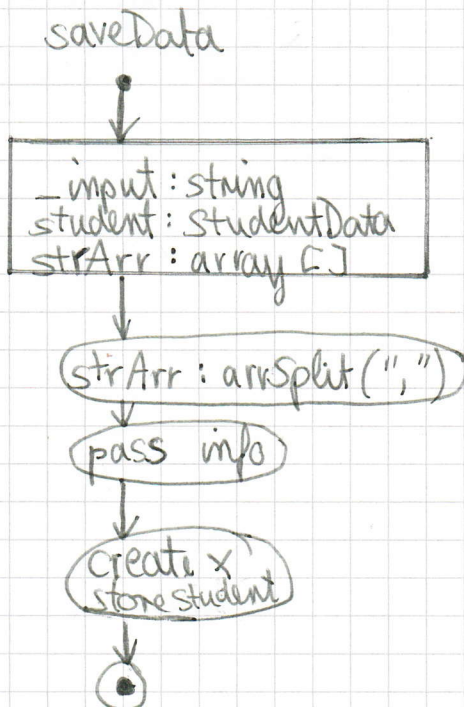 saveData
_input : string
student : StudentData
strArr : array []
strArr : arrSplit(",")
pass info
create &
store student